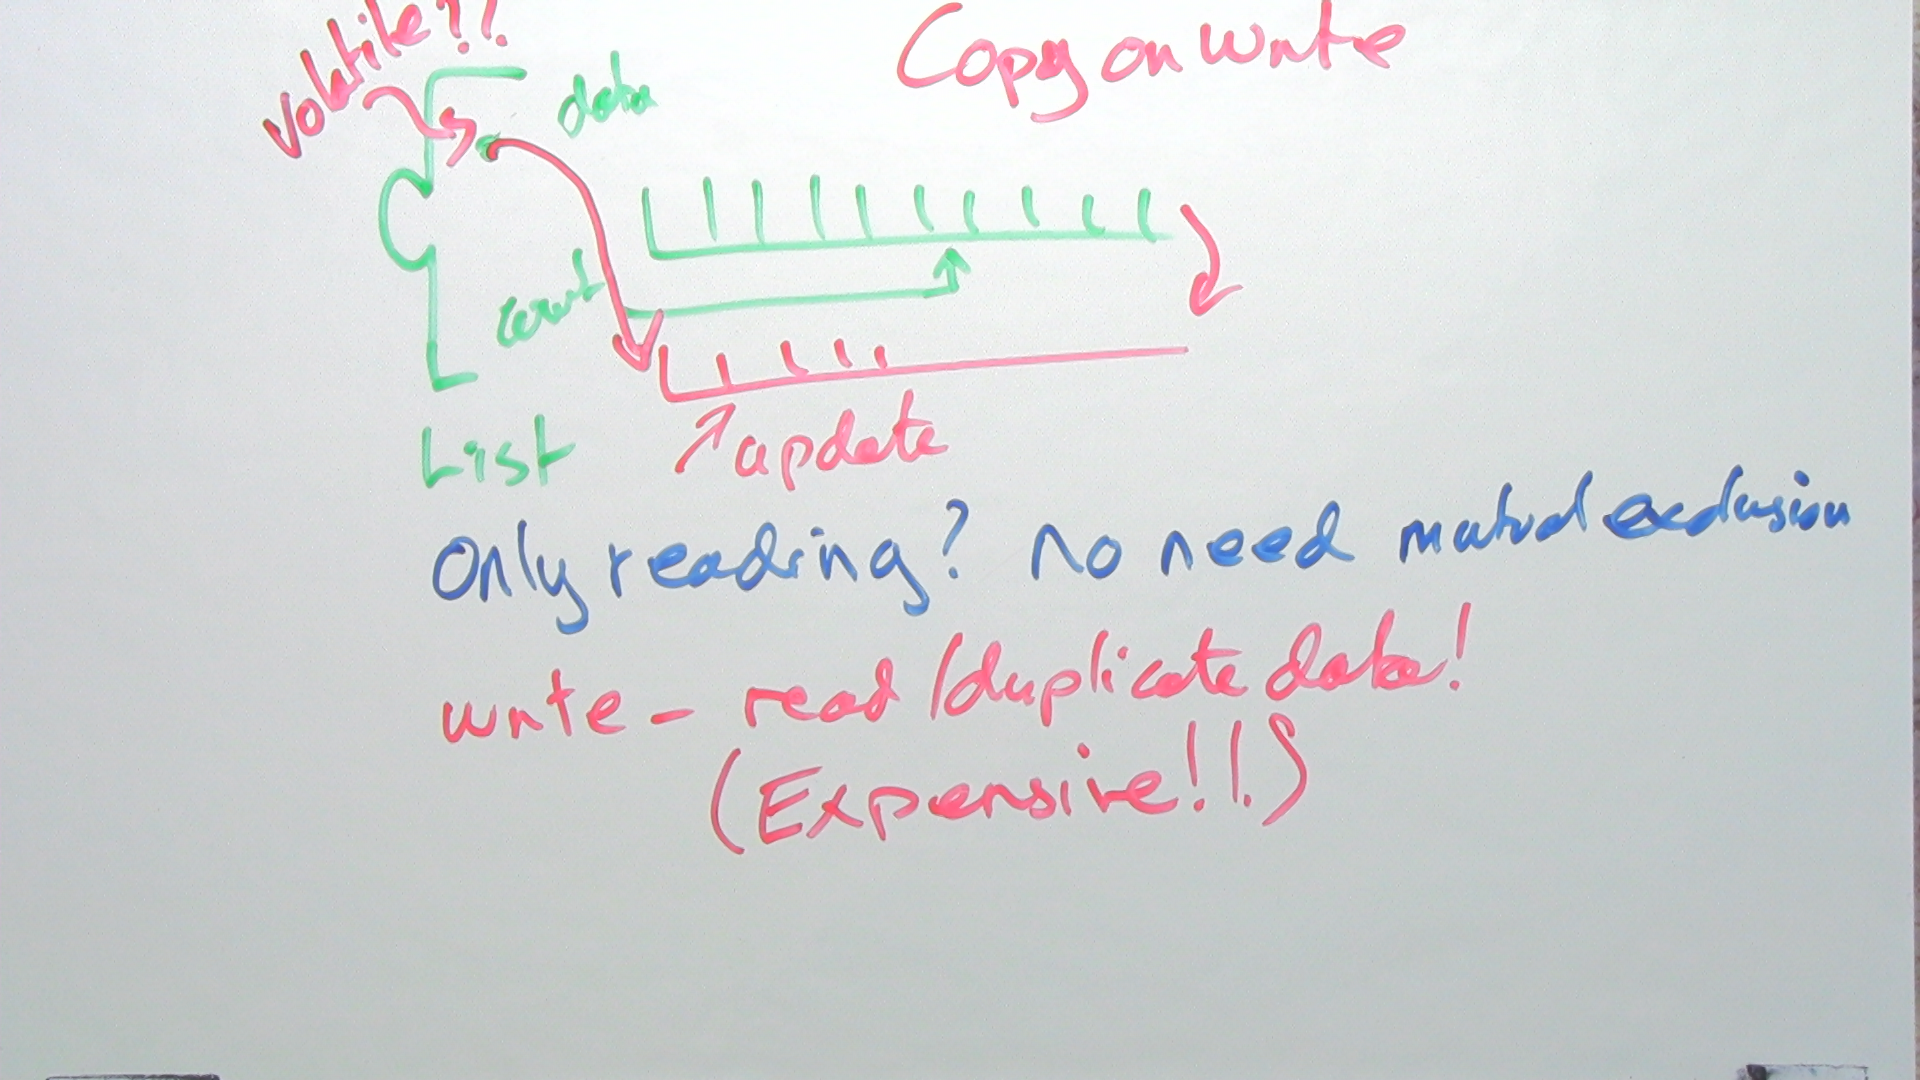 volatile??
Copy on write
data
count
List
update
Only reading? no need mutual exclusion
write - read/duplicate data!
(Expensive!!!)